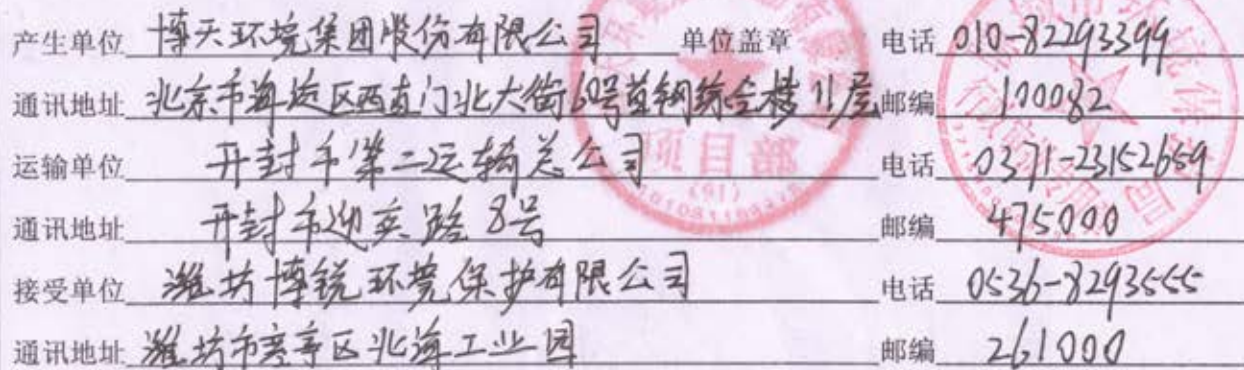 产生单位 博天环境集团股份有限公司 单位盖章 电话 010-82293399
通讯地址 北京市海淀区西直门北大街60号首钢综合楼11层 邮编 100082
运输单位 开封市第二运输总公司 电话 0371-23152659
通讯地址 开封市迎宾路8号 邮编 475000
接受单位 潍坊博锐环境保护有限公司 电话 0536-8293555
通讯地址 潍坊市寒亭区北海工业园 邮编 261000
项目部
(01)